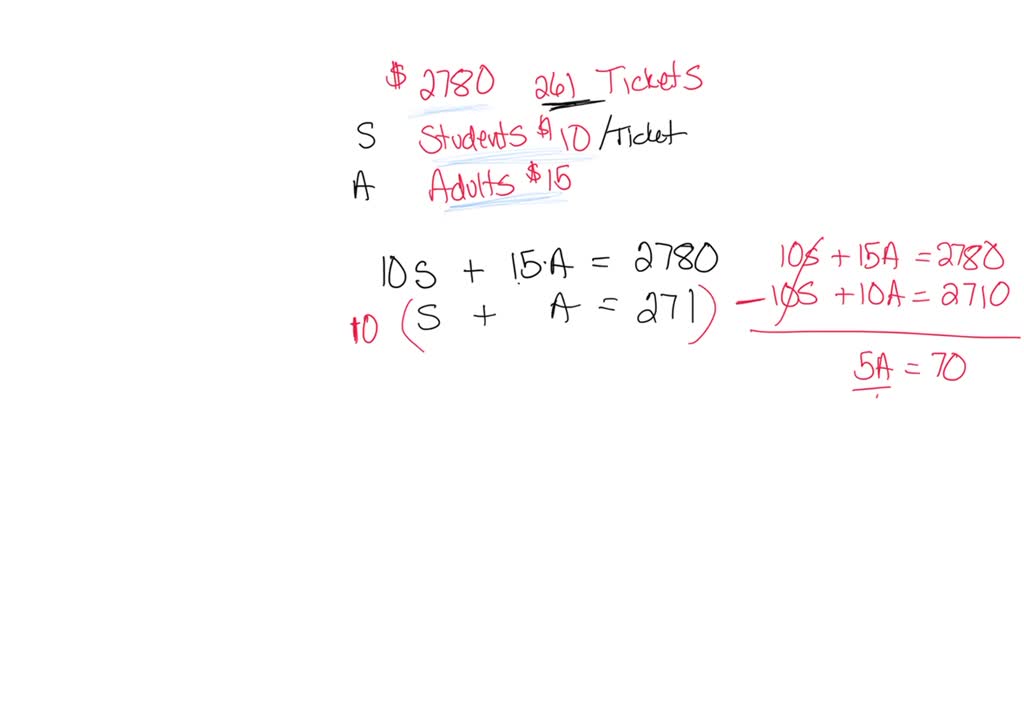 $ 2780 261 Tickets
S Students $10 /Ticket
A Adults $15
10S + 15·A = 2780
10 (S + A = 271)
10S + 15A = 2780
- 10S + 10A = 2710
5A = 70